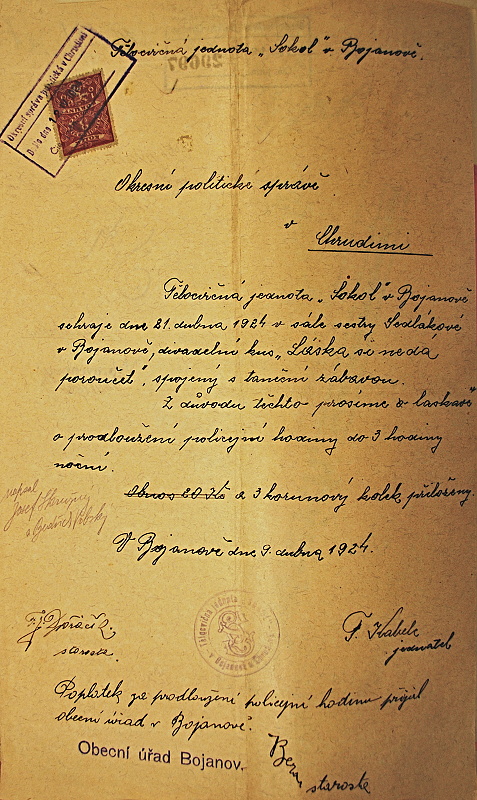 Tělocvičná jednota „Sokol" v Bojanově.
Okresní správa politická v Chrudimi
Okresní politické správě
v
Chrudimi
Tělocvičná jednota „Sokol" v Bojanově
sehraje dne 21. dubna 1924 v sále sestry Sedlákové
v Bojanově, divadelní kus „Láska si nedá
poroučet", spojený s taneční zábavou.
Z důvodu těchto prosíme o laskavé
o prodloužení policejní hodiny do 3 hodiny
noční.
Obnos 20 Kč a 3 korunový kolek přiloženy.
V Bojanově dne 9. dubna 1924.
nepsal
Josef
a
starosta.
F. Kabele
jednatel
Tělocvičná jednota
v Bojanově
Poplatek za prodloužení policejní hodinu přijal
obecní úřad v Bojanově.
Obecní úřad Bojanov.
starosta